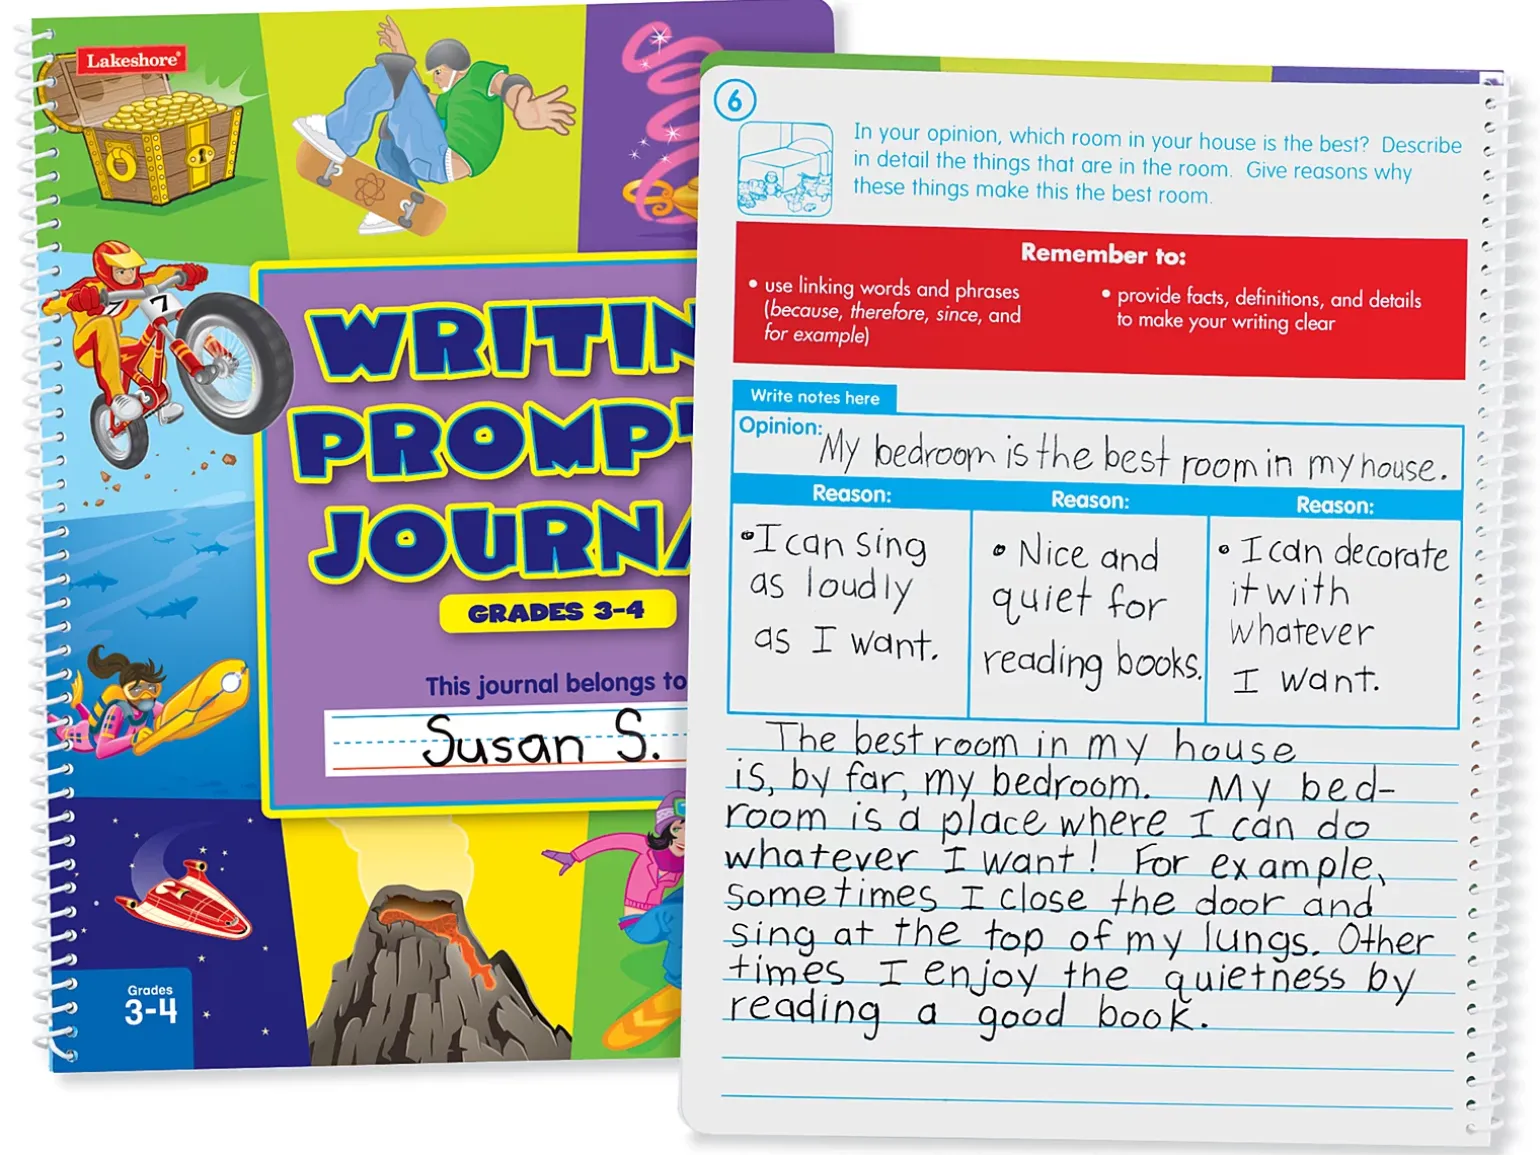 Lakeshore®
7
WRITIN
PROMPT
JOURNA
GRADES 3-4
This journal belongs to
Susan S.
Grades
3-4
6
In your opinion, which room in your house is the best? Describe
in detail the things that are in the room. Give reasons why
these things make this the best room.
Remember to:
• use linking words and phrases
(because, therefore, since, and
for example)
• provide facts, definitions, and details
to make your writing clear
Write notes here
Opinion: My bedroom is the best room in my house.
Reason:
• I can sing
as loudly
as I want.
Reason:
• Nice and
quiet for
reading books.
Reason:
• I can decorate
it with
whatever
I want.
The best room in my house
is, by far, my bedroom. My bed-
room is a place where I can do
whatever I want! For example,
sometimes I close the door and
sing at the top of my lungs. Other
times I enjoy the quietness by
reading a good book.